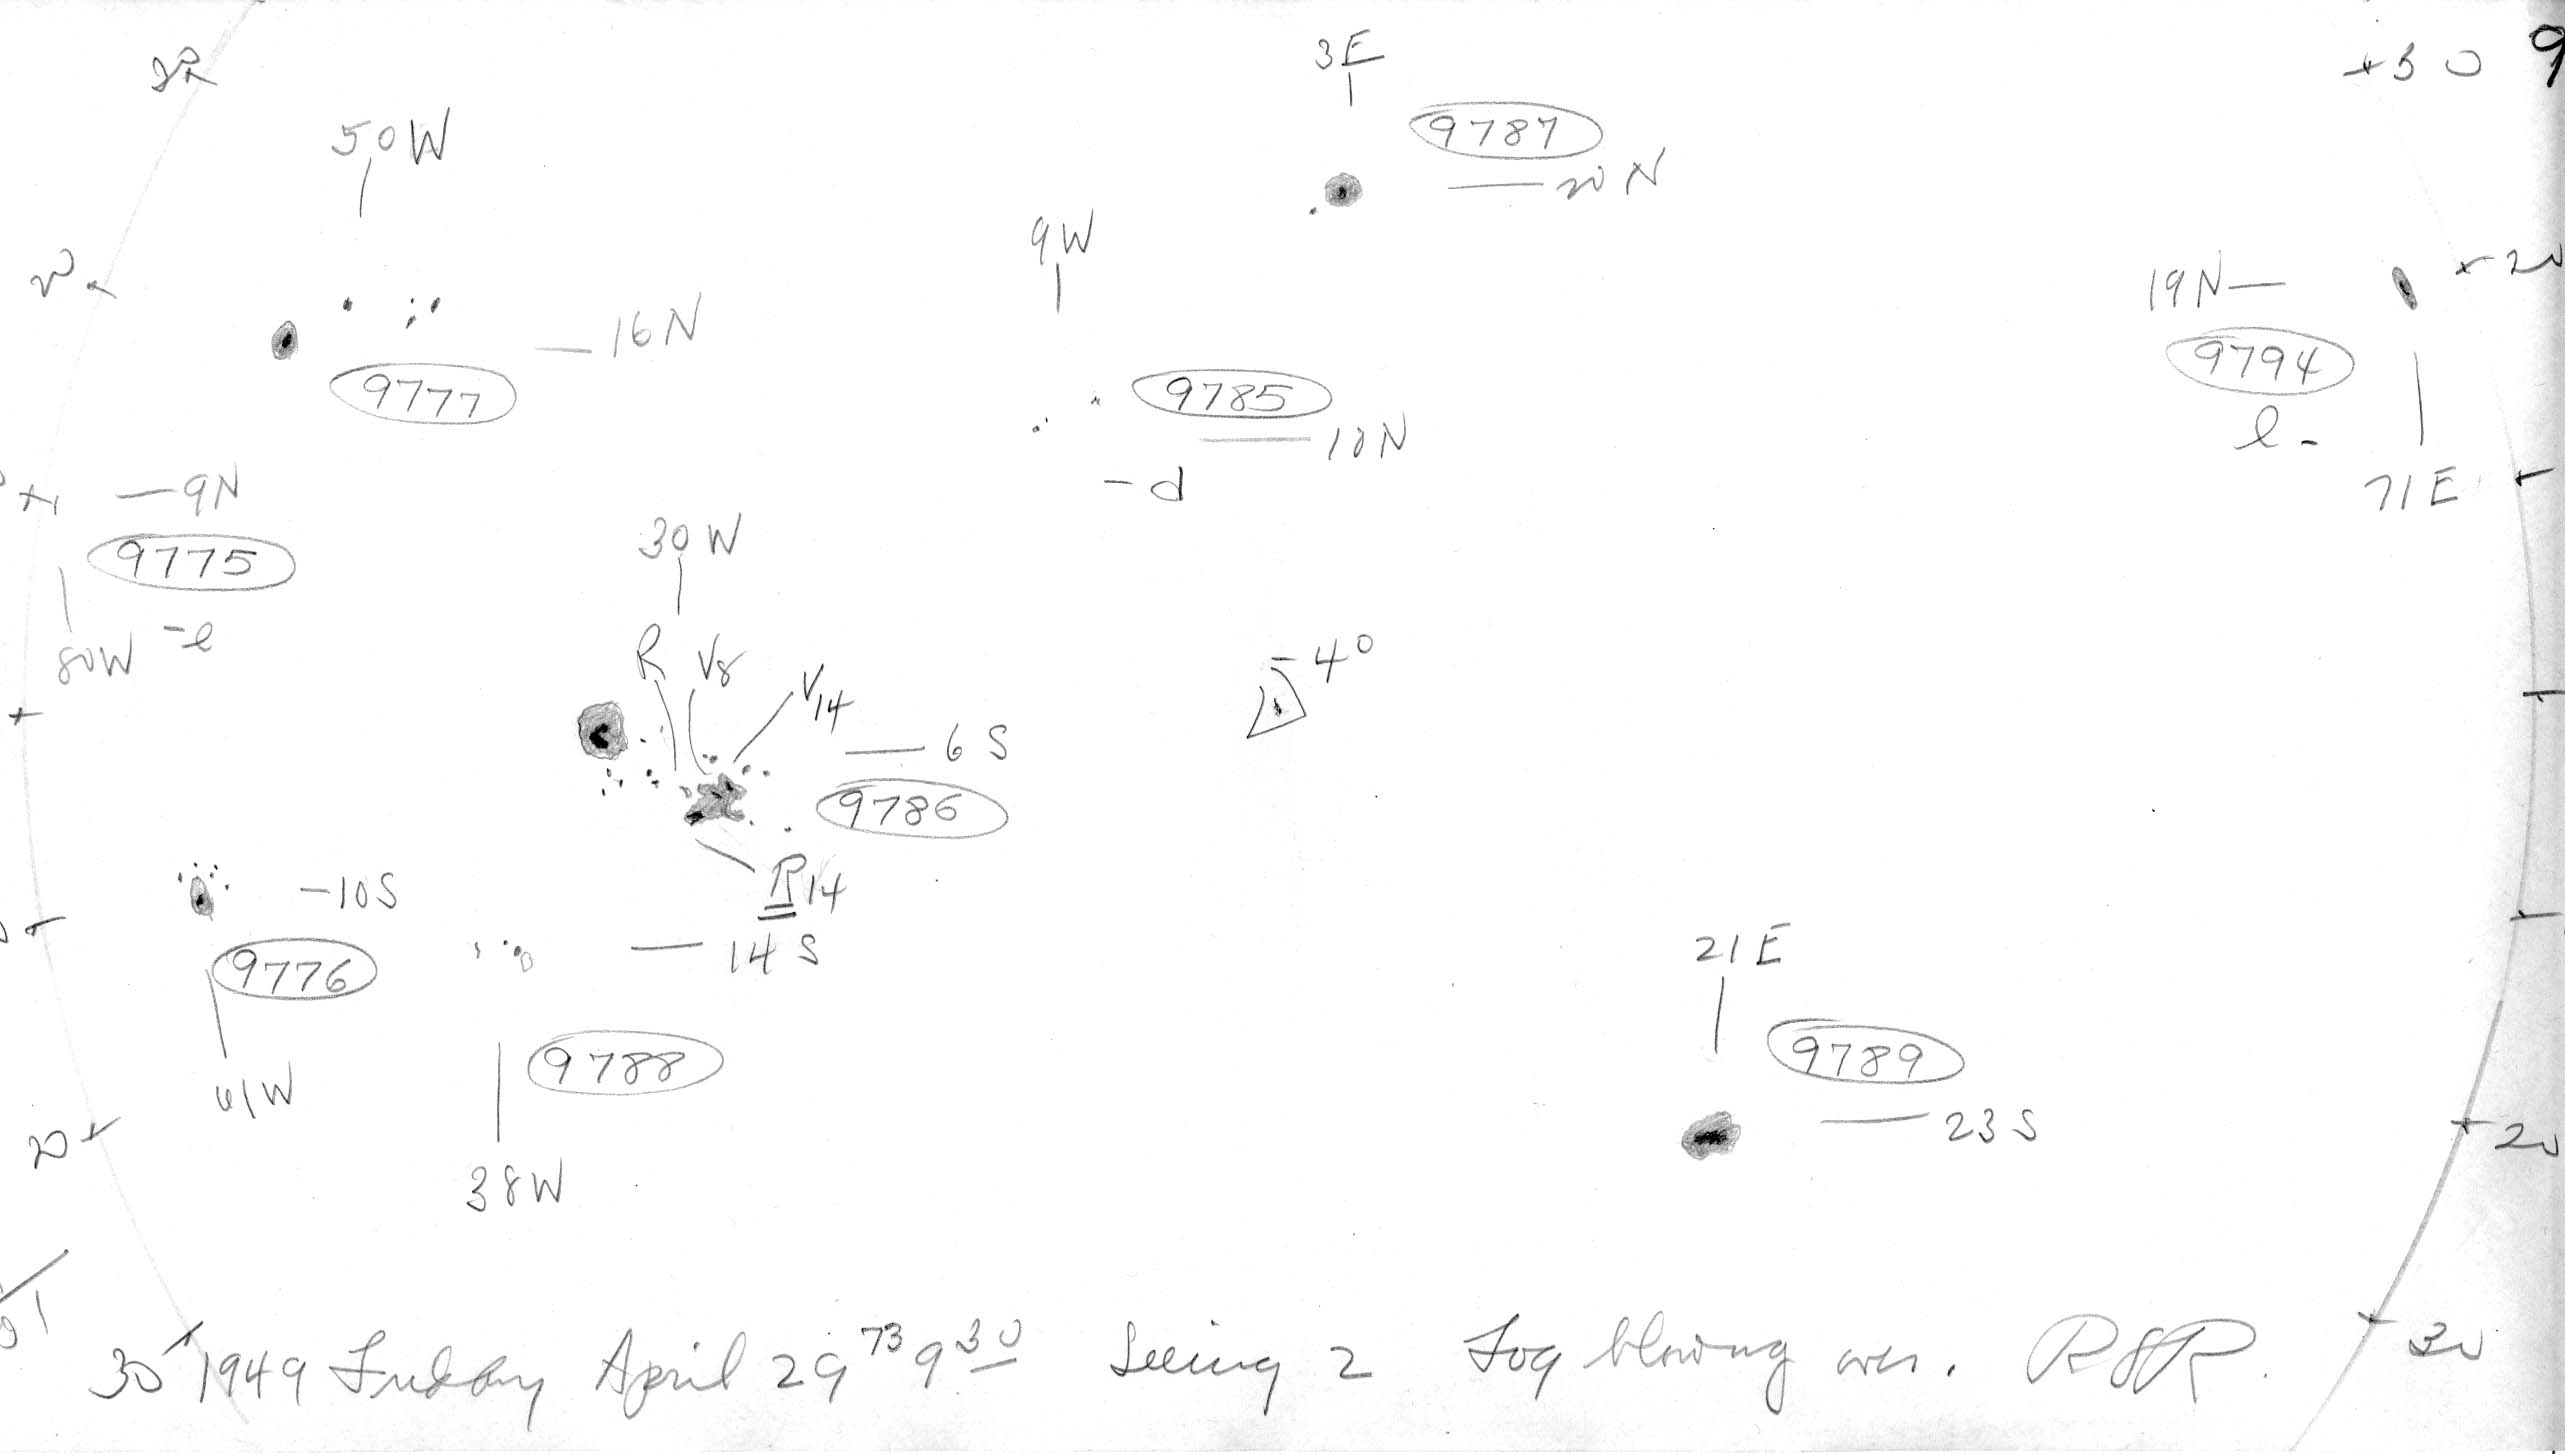 3E
+30
9
50W
9787
20 N
9W
20
19N
+20
16N
9794
9777
9785
l -
10N
- d
71E
9N
9775
30W
80W
-l
R
V8
V14
-4°
6 S
9786
R14
-10S
14 S
9776
21E
9788
9789
61W
23 S
20
20
38W
30
1949 Friday April 29⁷³ 9³⁰ Seeing 2 Fog blowing over. RSR.
30